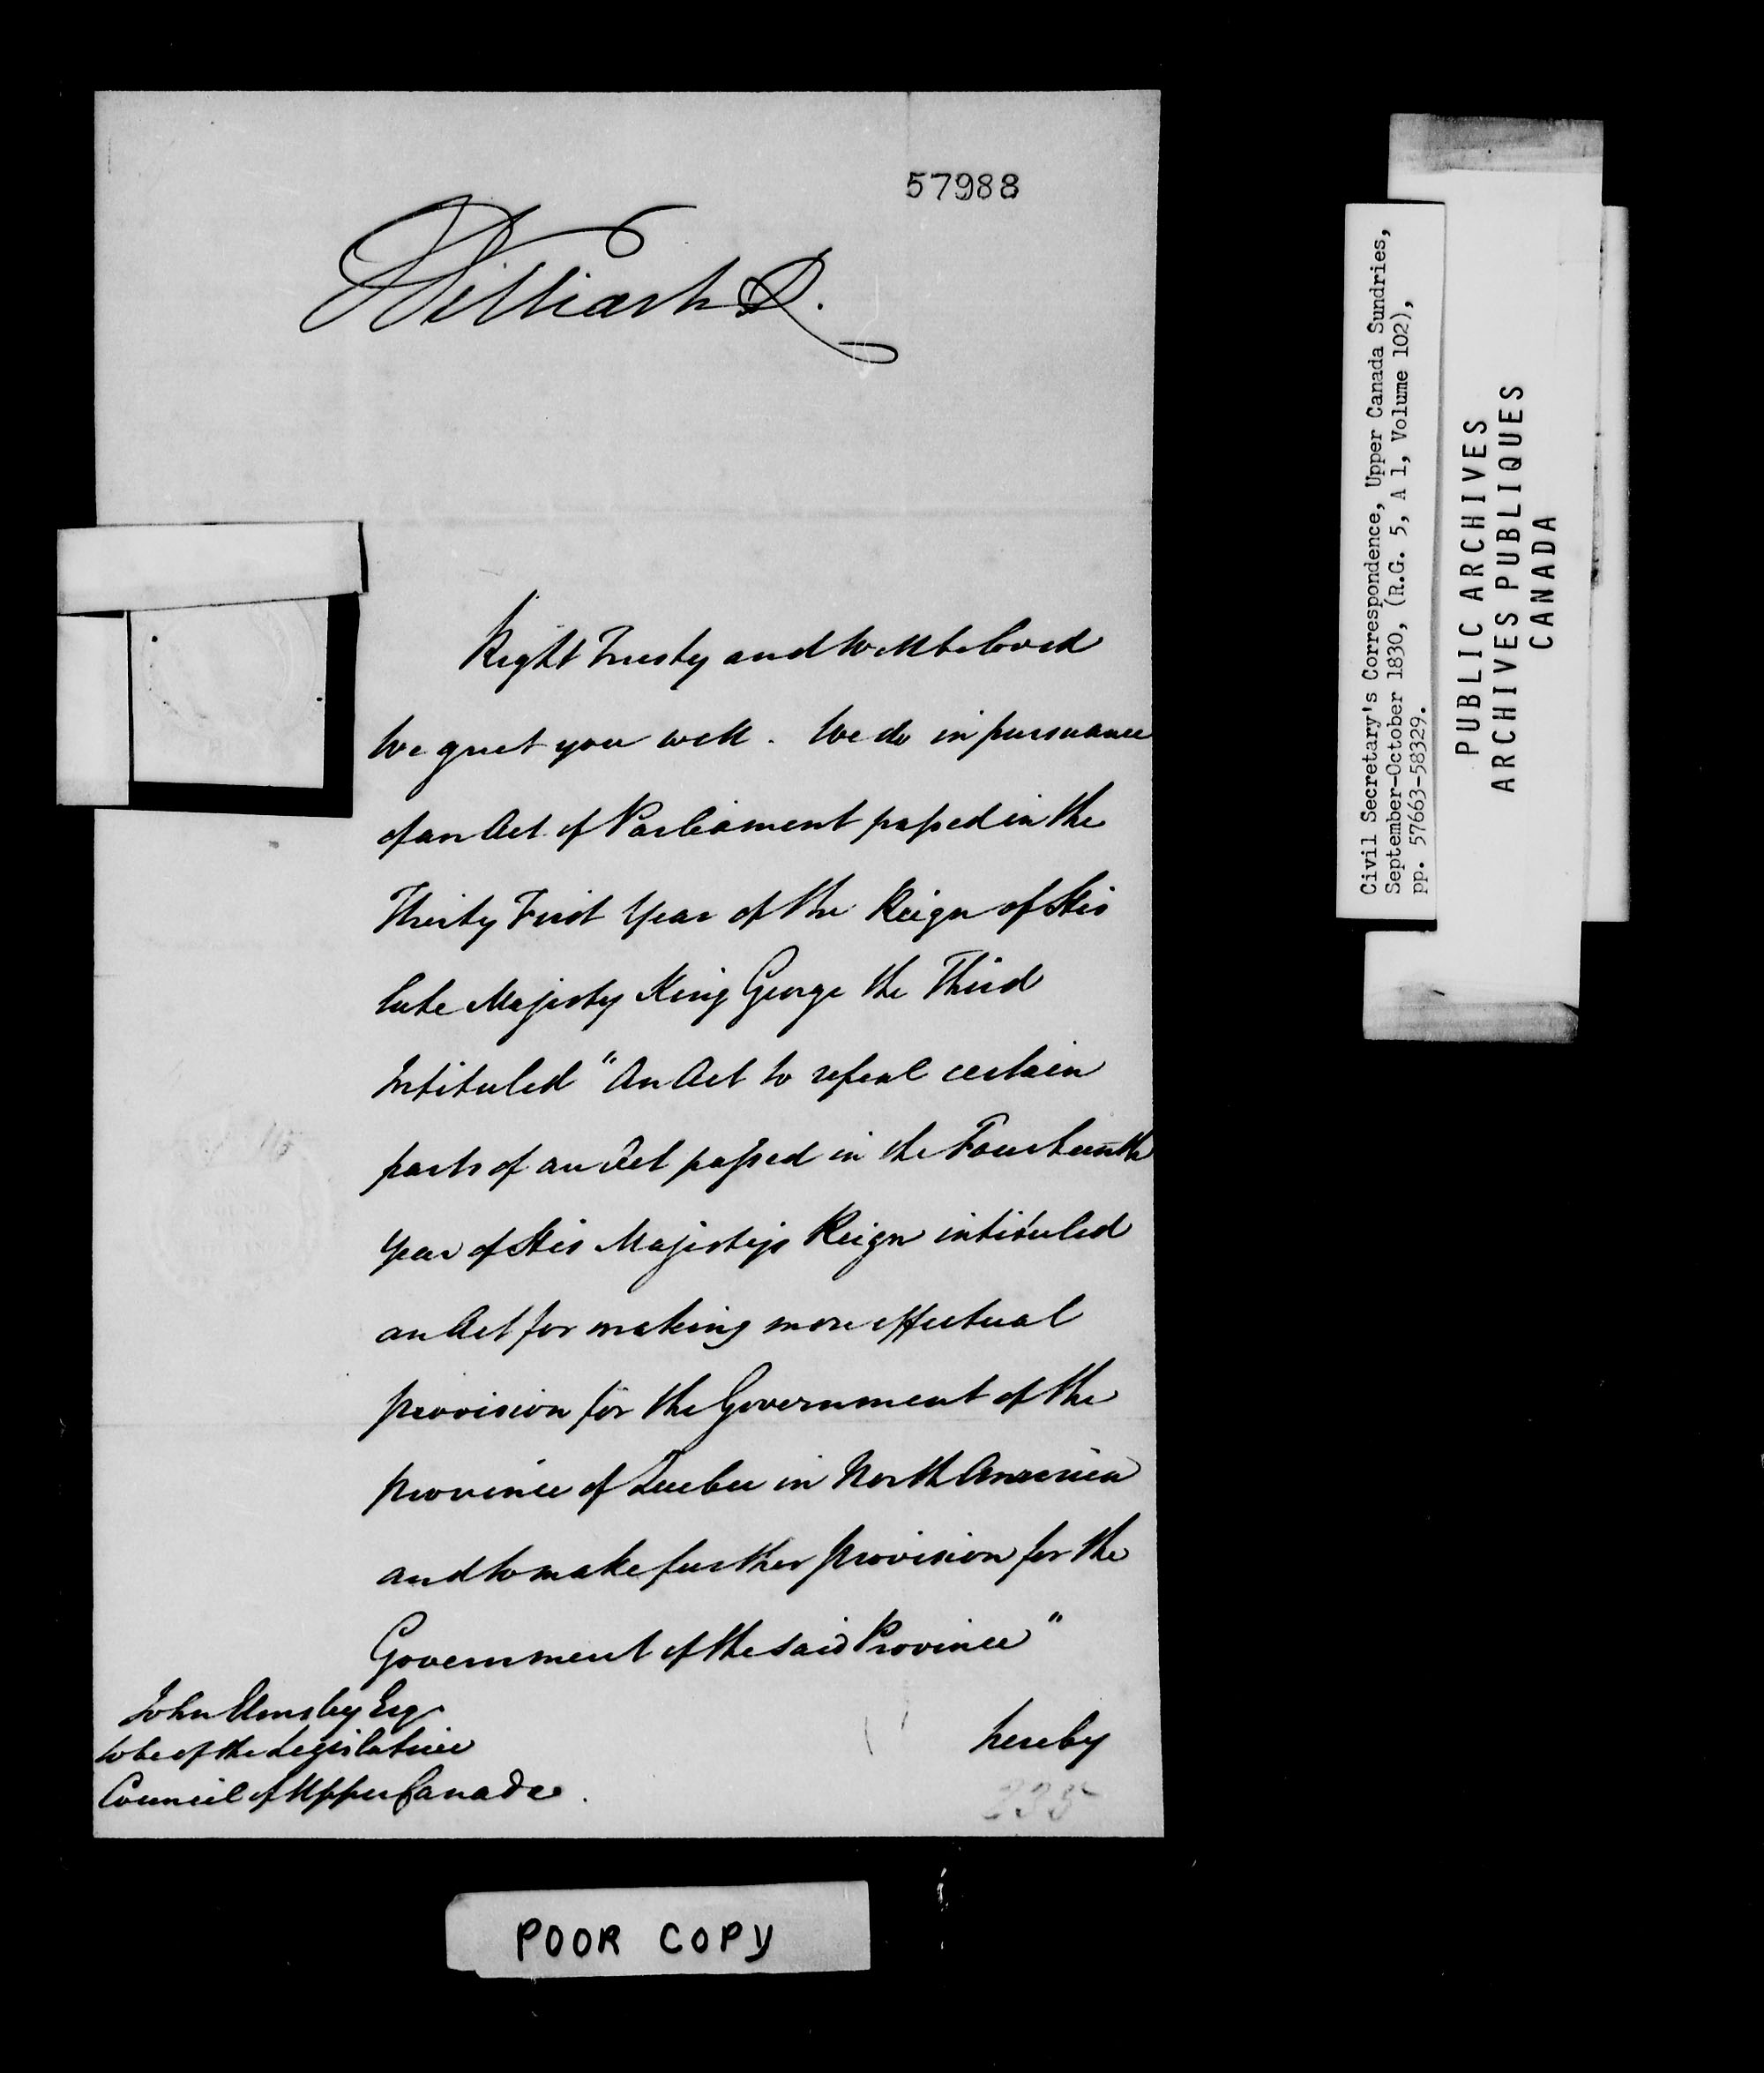 57988
William R.
Right Trusty and Wellbeloved
We greet you well. We do in pursuance
of an Act of Parliament passed in the
Thirty First Year of the Reign of His
late Majesty King George the Third
Intituled "An Act to repeal certain
parts of an Act passed in the Fourteenth
Year of His Majestys Reign intituled
an Act for making more effectual
provision for the Government of the
province of Quebec in North America
and to make further provision for the
Government of the said Province"
hereby
John Elmsley Esq
to be of the Legislative
Council of Upper Canada.
235
POOR COPY
Civil Secretary's Correspondence, Upper Canada Sundries,
September-October 1830, (R.G. 5, A 1, Volume 102),
pp. 57663-58329.
PUBLIC ARCHIVES
ARCHIVES PUBLIQUES
CANADA